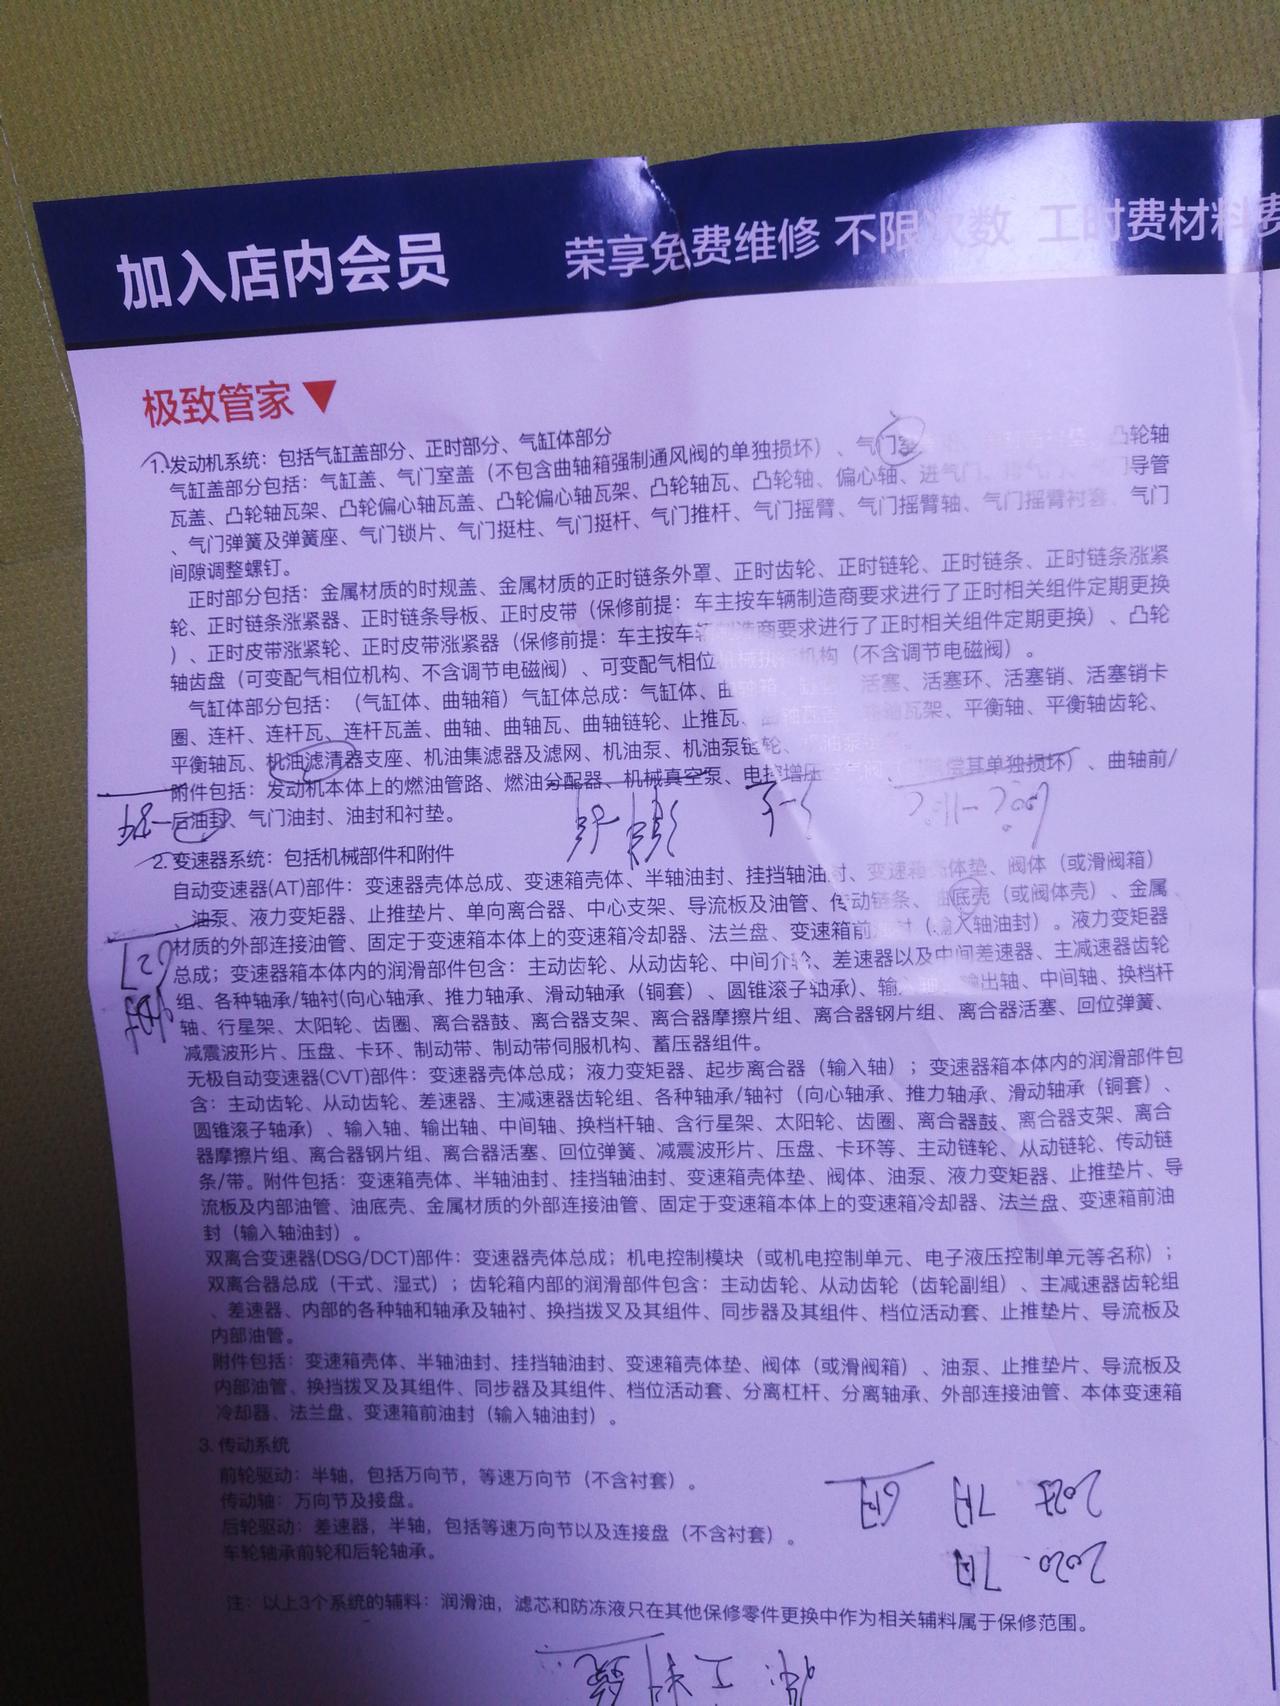 加入店内会员 荣享免费维修 不限次数 工时费材料费
极致管家
1.发动机系统：包括气缸盖部分、正时部分、气缸体部分
气缸盖部分包括：气缸盖、气门室盖（不包含曲轴箱强制通风阀的单独损坏）、气门室 凸轮轴
瓦盖、凸轮轴瓦架、凸轮偏心轴瓦盖、凸轮偏心轴瓦架、凸轮轴瓦、凸轮轴、偏心轴、进气门、 门导管
、气门弹簧及弹簧座、气门锁片、气门挺柱、气门挺杆、气门推杆、气门摇臂、气门摇臂轴、气门摇臂衬套、气门
间隙调整螺钉。
正时部分包括：金属材质的时规盖、金属材质的正时链条外罩、正时齿轮、正时链轮、正时链条、正时链条涨紧
轮、正时链条涨紧器、正时链条导板、正时皮带（保修前提：车主按车辆制造商要求进行了正时相关组件定期更换
）、正时皮带涨紧轮、正时皮带涨紧器（保修前提：车主按车辆制造商要求进行了正时相关组件定期更换）、凸轮
轴齿盘（可变配气相位机构、不含调节电磁阀）、可变配气相位机械执行机构（不含调节电磁阀）。
气缸体部分包括：（气缸体、曲轴箱）气缸体总成：气缸体、曲轴箱、 活塞、活塞环、活塞销、活塞销卡
圈、连杆、连杆瓦、连杆瓦盖、曲轴、曲轴瓦、曲轴链轮、止推瓦、 瓦架、平衡轴、平衡轴齿轮、
平衡轴瓦、机油滤清器支座、机油集滤器及滤网、机油泵、机油泵链轮、
附件包括：发动机本体上的燃油管路、燃油分配器、机械真空泵、电控增压 单独损坏）、曲轴前/
后油封、气门油封、油封和衬垫。
2.变速器系统：包括机械部件和附件
自动变速器(AT)部件：变速器壳体总成、变速箱壳体、半轴油封、挂挡轴油封、变速箱壳体垫、阀体（或滑阀箱）
、油泵、液力变矩器、止推垫片、单向离合器、中心支架、导流板及油管、传动链条、油底壳（或阀体壳）、金属
材质的外部连接油管、固定于变速箱本体上的变速箱冷却器、法兰盘、变速箱前油封（输入轴油封）。液力变矩器
总成；变速器箱本体内的润滑部件包含：主动齿轮、从动齿轮、中间介轮、差速器以及中间差速器、主减速器齿轮
组、各种轴承/轴衬(向心轴承、推力轴承、滑动轴承（铜套）、圆锥滚子轴承)、输入轴、输出轴、中间轴、换档杆
轴、行星架、太阳轮、齿圈、离合器鼓、离合器支架、离合器摩擦片组、离合器钢片组、离合器活塞、回位弹簧、
减震波形片、压盘、卡环、制动带、制动带伺服机构、蓄压器组件。
无极自动变速器(CVT)部件：变速器壳体总成；液力变矩器、起步离合器（输入轴）；变速器箱本体内的润滑部件包
含：主动齿轮、从动齿轮、差速器、主减速器齿轮组、各种轴承/轴衬（向心轴承、推力轴承、滑动轴承（铜套）、
圆锥滚子轴承）、输入轴、输出轴、中间轴、换档杆轴、含行星架、太阳轮、齿圈、离合器鼓、离合器支架、离合
器摩擦片组、离合器钢片组、离合器活塞、回位弹簧、减震波形片、压盘、卡环等、主动链轮、从动链轮、传动链
条/带。附件包括：变速箱壳体、半轴油封、挂挡轴油封、变速箱壳体垫、阀体、油泵、液力变矩器、止推垫片、导
流板及内部油管、油底壳、金属材质的外部连接油管、固定于变速箱本体上的变速箱冷却器、法兰盘、变速箱前油
封（输入轴油封）。
双离合变速器(DSG/DCT)部件：变速器壳体总成；机电控制模块（或机电控制单元、电子液压控制单元等名称）；
双离合器总成（干式、湿式）；齿轮箱内部的润滑部件包含：主动齿轮、从动齿轮（齿轮副组）、主减速器齿轮组
、差速器、内部的各种轴和轴承及轴衬、换挡拨叉及其组件、同步器及其组件、档位活动套、止推垫片、导流板及
内部油管。
附件包括：变速箱壳体、半轴油封、挂挡轴油封、变速箱壳体垫、阀体（或滑阀箱）、油泵、止推垫片、导流板及
内部油管、换挡拨叉及其组件、同步器及其组件、档位活动套、分离杠杆、分离轴承、外部连接油管、本体变速箱
冷却器、法兰盘、变速箱前油封（输入轴油封）。
3. 传动系统
前轮驱动：半轴，包括万向节，等速万向节（不含衬套）。
传动轴：万向节及接盘。
后轮驱动：差速器，半轴，包括等速万向节以及连接盘（不含衬套）。
车轮轴承前轮和后轮轴承。
注：以上3个系统的辅料：润滑油，滤芯和防冻液只在其他保修零件更换中作为相关辅料属于保修范围。
2020.7月
7月 6月